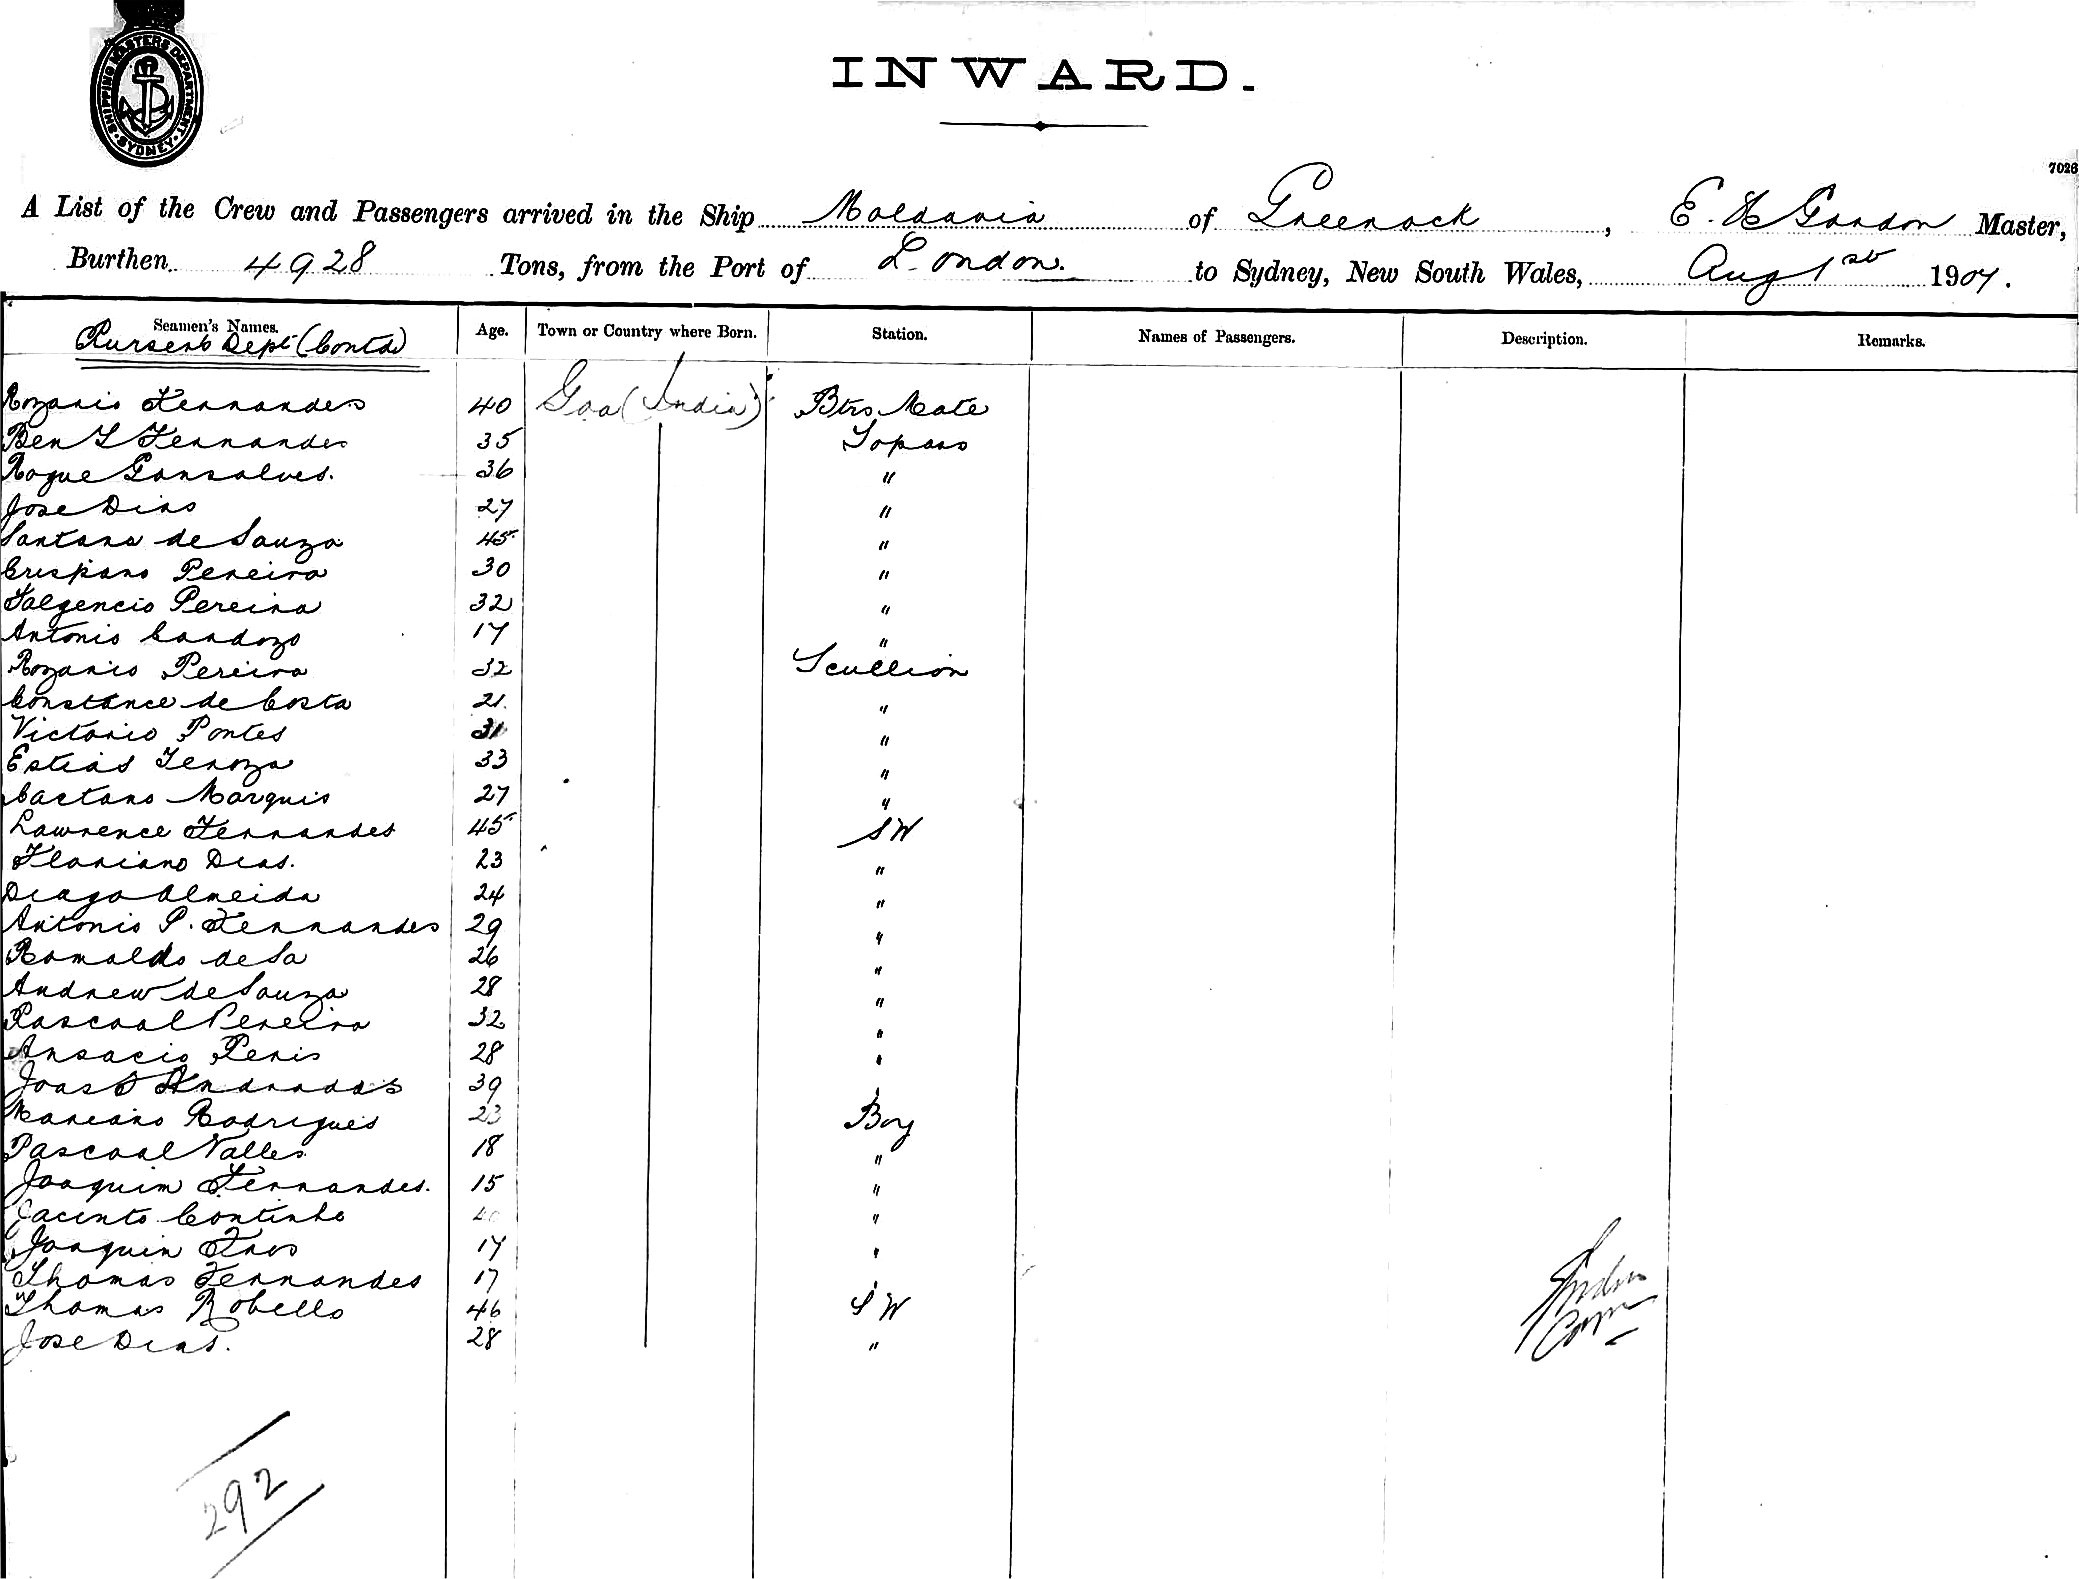 SHIPPING MASTERS DEPARTMENT · SYDNEY ·
INWARD.
7026
A List of the Crew and Passengers arrived in the Ship Moldavia of Greenock, E. H Gordon Master,
Burthen 4928 Tons, from the Port of London. to Sydney, New South Wales, Aug 1st 1907.
Seamen's Names. Age. Town or Country where Born. Station. Names of Passengers. Description. Remarks.
Pursers Dept (Contd)
Rozario Fernandes 40 Goa (India) Btrs Mate
Ben L Fernandes 35 Topass
Roque Gonsalves. 36 "
Jose Dias 27 "
Santana de Souza 45 "
Crispano Pereira 30 "
Falgencio Pereira 32 "
Antonio Cardozo 17 "
Rozario Pereira 32 Scullion
Constance de Costa 21. "
Victorio Pontes 31 "
Estias 33 "
Caetano Marquis 27 "
Lawrence Fernandes 45 SW
Floriano Dias. 23 "
Diago Almeida 24 "
Antonio P. Fernandes 29 "
Romaldo de Sa 26 "
Andrew de Souza 28 "
Pascoal Pereira 32 "
Ansacio Peris 28 "
Joas Andradas 39 "
Mariano Rodrigues 23 Boy
Pascoal Valles 18 "
Joaquim Fernandes. 15 "
Jacinto Continho "
Joaquin 17 "
Thomas Fernandes 17
Thomas Robello 46 SW
Jose Dias. 28 "
292